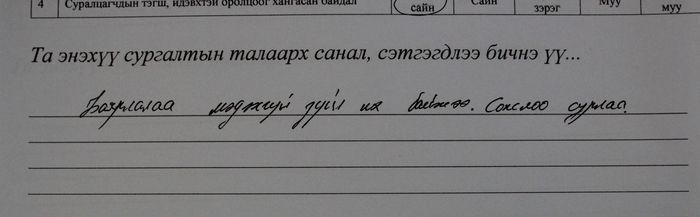 4 Суралцагчдын тэгш, идэвхтэй оролцоог хангасан байдал сайн Сайн зэрэг Муу муу
Та энэхүү сургалтын талаарх санал, сэтгэгдлээ бичнэ үү...
Баярлалаа мэдэхгүй зүйл их байжээ. Сонслоо сурлаа.